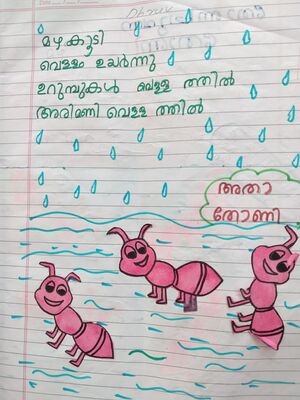 മഴകൂടി
വെള്ളം ഉയർന്നു
ഉറുമ്പുകൾ വെള്ള ത്തിൽ
അരിമണി വെള്ള ത്തിൽ
അതാ
തോണി